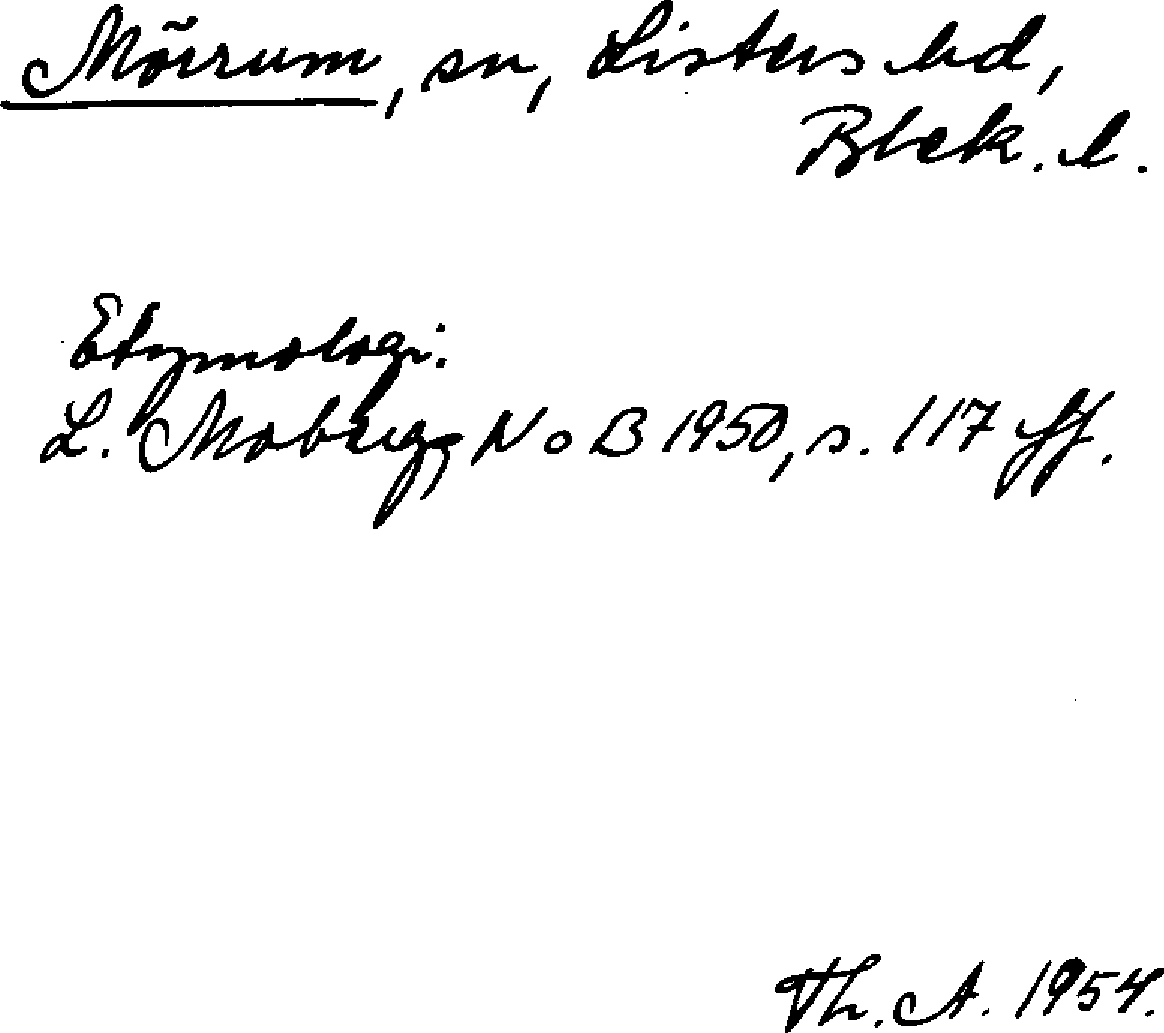 Mörrum, sn, Listers hd,
Blek. l.
Etymologi:
L. Moberg, NoB 1950, s. 117 ff.
Th. A. 1954.